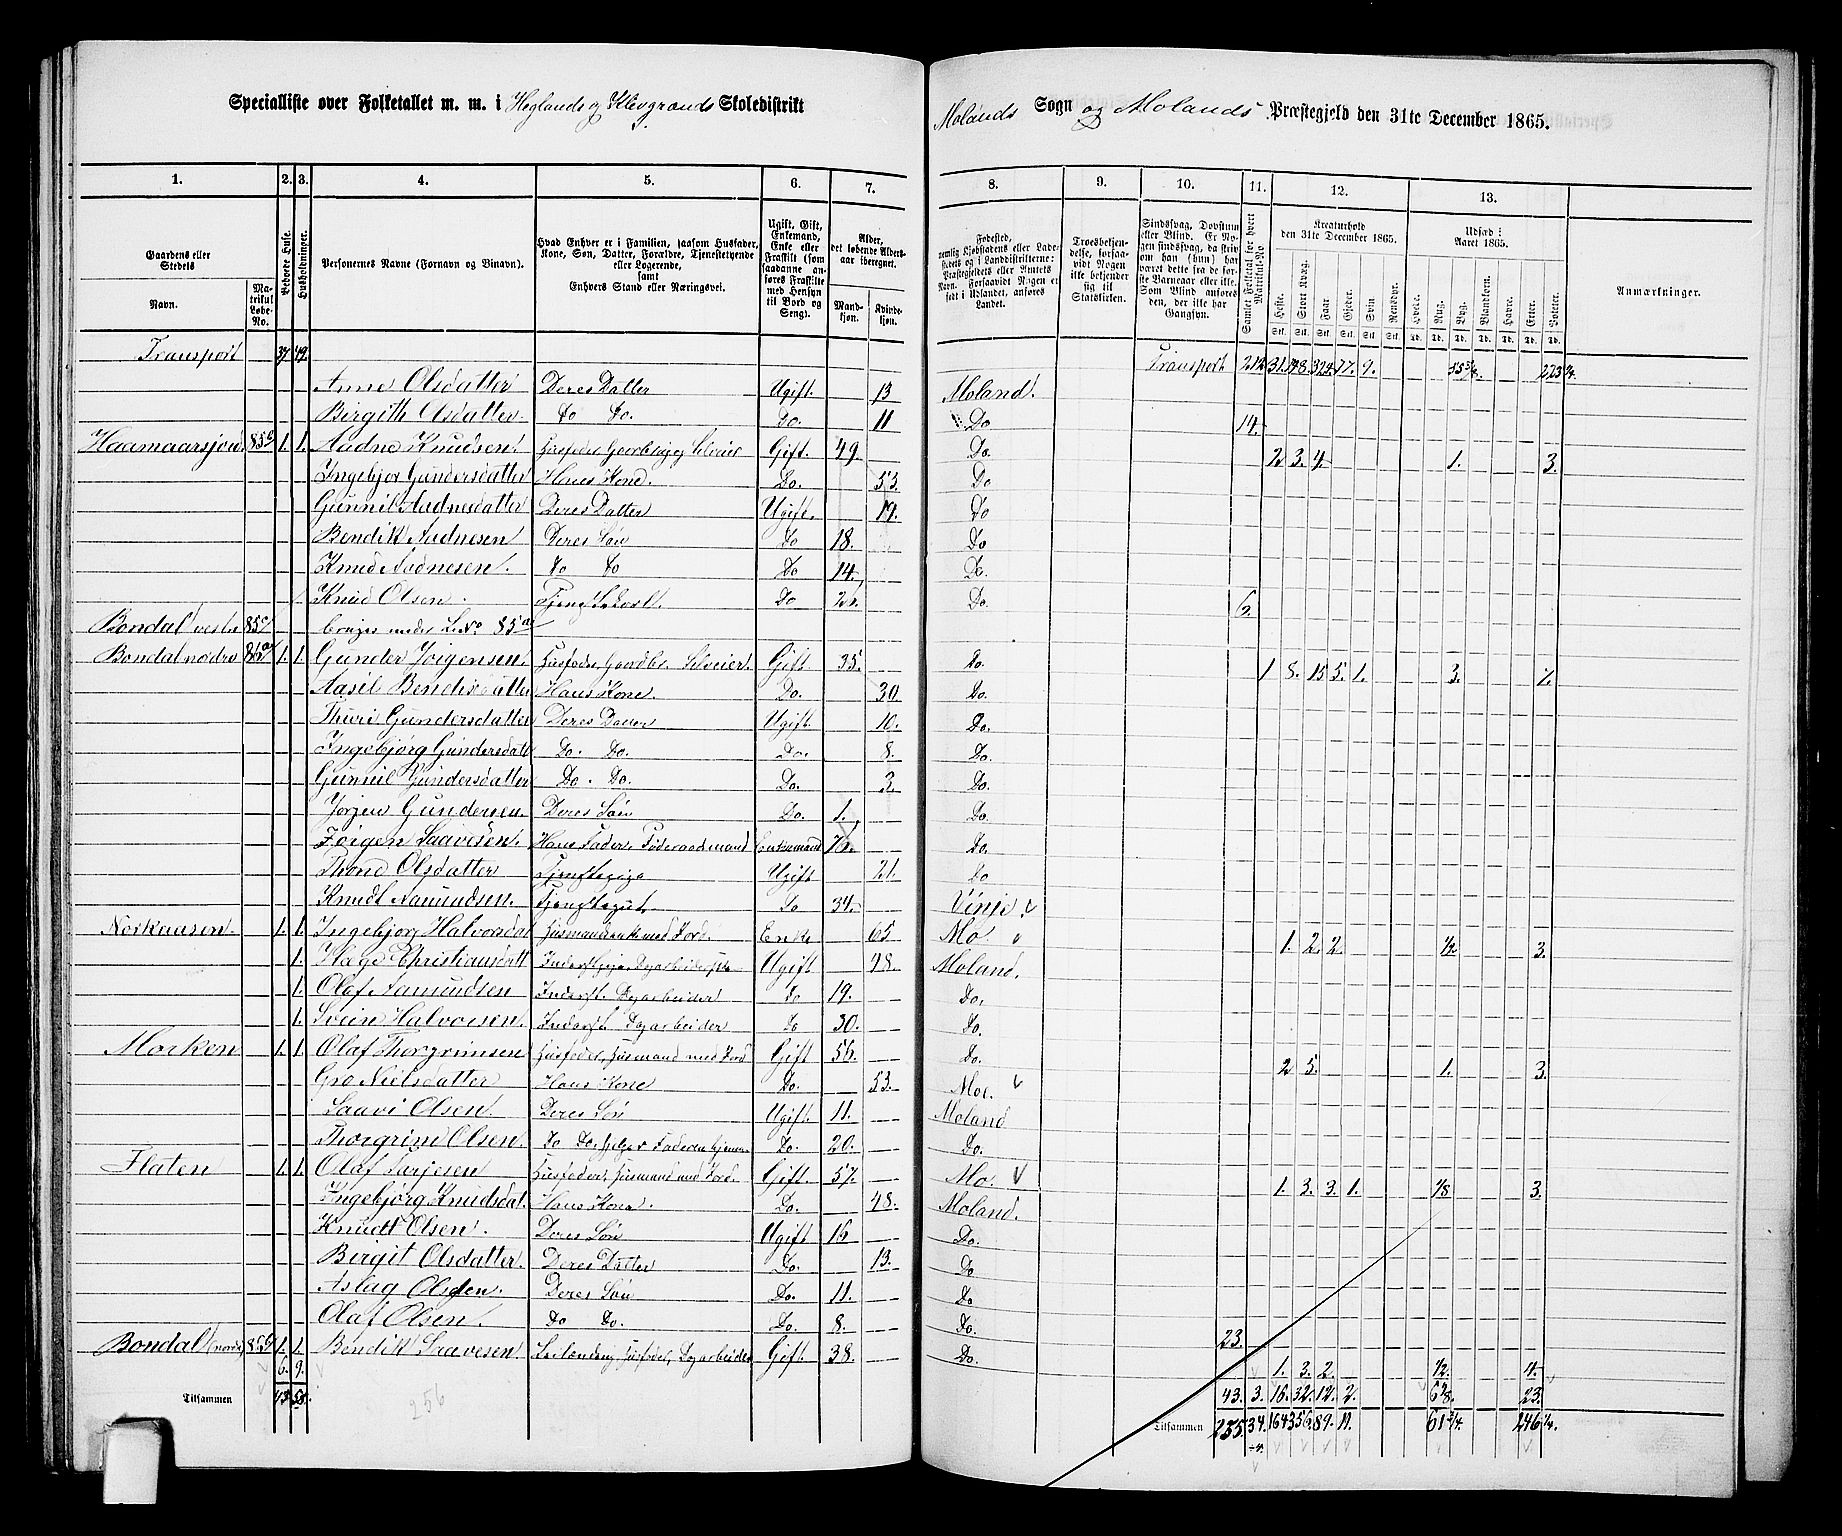 Specialliste over Folketallet m. m. i Heglands og Klevgrænds Skoledistrikt
Molands Sogn og Molands Præstegjeld den 31te December 1865.
1. 2. 3. 4. 5. 6. 7. 8. 9. 10. 11. 12. 13.
Gaardens eller Stedets
Navn. Matrikul Løbe-No.
Beboede Huse.
Husholdninger.
Personernes Navne (Fornavn og Vinavn).
Hvad Enhver er i Familien, saasom Husfader, Kone, Søn, Datter, Forældre, Tjenstetyende eller Logerende, samt Enhvers Stand eller Næringsvei.
Ugift, Gift, Enkemand, Enke eller Fraskilt (som saadanne anføres Fraskilte med Hensyn til Bord og Seng).
Alder, det løbende Aldersaar iberegnet.
Mandkjøn. Kvindekjøn.
Fødested,
Troesbekjendelse, forsaavidt Nogen ikke bekjender sig til Statskirken.
Sindssvag, Døvstum eller Blind.
Samlet Folketal for hvert Matrikul-No
Kreaturhold den 31te December 1865.
Heste. Stort Kvæg. Faar. Gjeder. Svin. Rensdyr.
Udsæd i Aaret 1865.
Hvede. Rug. Byg. Blandkorn. Havre. Erter. Poteter.
Anmærkninger.
Transport 37 49. Transport 212 31 148. 322. 77. 9. 55 3/4. 223 1/4.
Anne Olsdatter Deres Datter Ugift. 13 Moland.
Birgith Olsdatter. Do Do. Do. 11 Do 14.
Haamaarsjou 85a 1. 1. Aadne Knudsen. Husfader Gaardbrug og Selveier Gift. 49. Do. 2. 3. 4. 1. 3.
Ingebjor Gundersdatter Hans Kone. Do. 53. Do
Gunnil Aadnesdatter Deres Datter Ugift. 19. Do
Bendik Aadnesen Deres Søn Do 18. Do
Knud Aadnesen. Do Do Do 14. Do.
Knud Olsen. Do 26. Do. 6.
Bondal vestre 85c bruges under LNo 85a
Bondal nordre 86a 1. 1. Gunder Jørgensen. Husfader, Gaardbr. Selveier. Gift 35. Do. 1 8. 15 5. 1. 3. 7.
Aasil Bendiksdatter Hans Kone. Do. 30 Do.
Thuri Gundersdatter Deres Datter Ugift. 10. Do.
Ingebjørg Gundersdatt Do. Do. Do. 8. Do.
Gunnil Gundersdatter Do. Do. Do. 3. Do.
Jørgen Gundersen. Deres Søn Do. 1. Do.
Jørgen Saavesen. Hans Fader, Føderaadmand Enkemand 76. Do.
Thone Olsdatter Tjenstepige Ugift 21. Do
Knudt Aamundsen. Tjenstegut. Do 34. Vinje.
Norkaasen. 1. 1. Ingebjorg Halvorsdat Husmandsenke med Jord. Enke 65 Mo. 1. 2. 2. 1/2. 3.
1. Hæge Christiansdatt Ugift 48. Moland.
1. Olaf Aamundsen Inderst. Dagarbeider Do 19. Do.
1. Svein Halvorsen. Inderst Dagarbeider Do 30. Do.
Morken 1. 1. Olaf Thorgrimsen Husfader, Husmand med Jord Gift 56. Do. 2 5. 1. 3.
Gro Nielsdatter Hans Kone Do. 53. Moe.
Saavi Olsen. Deres Søn Ugift. 11. Moland
Thorgrim Olsen. Do Do, hjelper Faderen hjemme Do. 20. Do.
Flaten 1. 1. Olaf Tarjesen Husfader, Husmand med Jord. Gift. 57. Mo. 1. 3. 3. 1. 1/8 3.
Ingebjørg Knudsdat. Hans Kone Do. 48. Moland.
Knudt Olsen. Deres Søn Ugift 16 Do.
Birgit Olsdatter. Deres Datter Do. 13. Do
Aslag Olsen. Deres Søn Do. 11. Do
Olaf Olsen. Do Do. Do. 8. Do. 23.
Bondal (nordre) 86b 1. 1. Bendik Saavesen. Leilænding, Husfader, Dagarbeider Gift 38. Do. 1. 3. 2. 1/2. 4.
6. 9. 43. 3. 16. 32. 12. 2. 6 23.
Tilsammen 43 58. 256 Tilsammen 255. 34. 164 356. 89. 11. 61 3/4. 246 1/4.